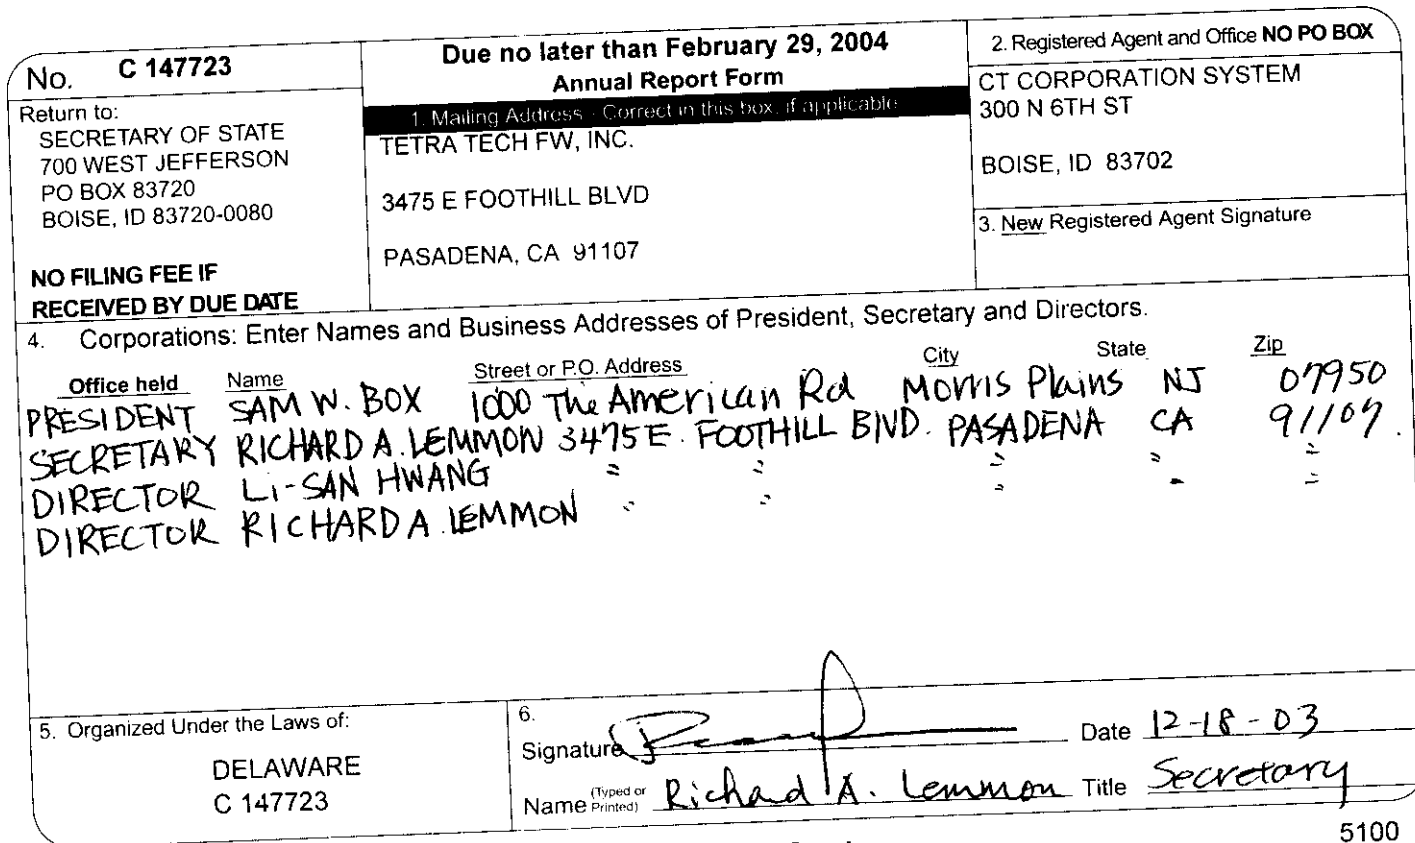 No. C 147723
Return to:
SECRETARY OF STATE
700 WEST JEFFERSON
PO BOX 83720
BOISE, ID 83720-0080
NO FILING FEE IF
RECEIVED BY DUE DATE
Due no later than February 29, 2004
Annual Report Form
1. Mailing Address - Correct in this box, if applicable
TETRA TECH FW, INC.
3475 E FOOTHILL BLVD
PASADENA, CA 91107
2. Registered Agent and Office NO PO BOX
CT CORPORATION SYSTEM
300 N 6TH ST
BOISE, ID 83702
3. New Registered Agent Signature
4. Corporations: Enter Names and Business Addresses of President, Secretary and Directors.
Office held Name Street or P.O. Address City State Zip
PRESIDENT SAM W. BOX 1000 The American Rd Morris Plains NJ 07950
SECRETARY RICHARD A. LEMMON 3475 E. FOOTHILL BLVD. PASADENA CA 91107.
DIRECTOR Li-SAN HWANG " " " " "
DIRECTOR RICHARD A. LEMMON " " " " "
5. Organized Under the Laws of:
DELAWARE
C 147723
6.
Signature Date 12-18-03
Name (Typed or Printed) Richard A. Lemmon Title Secretary
5100